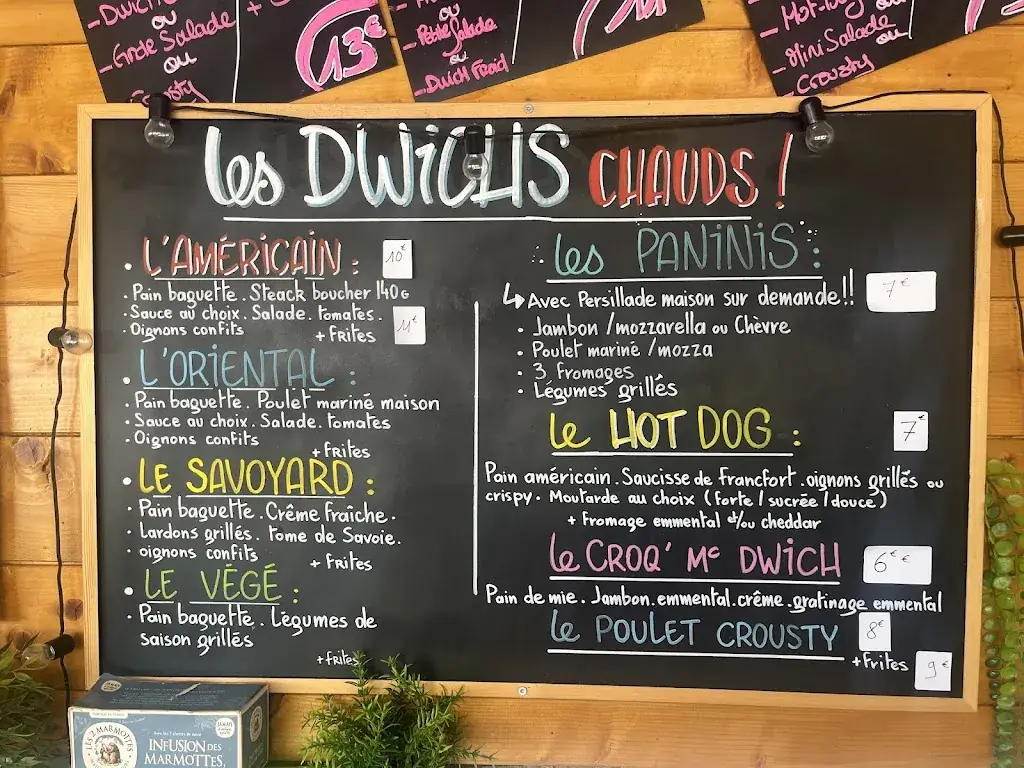 - Dwich
ou
- Grde Salade +
ou
- Crousty
13€
ou
- Petite Salade
ou
- Dwich Froid
- Hot-Dog ou
- Mini Salade
ou
- Crousty
les DWiCHS CHAUDS !
• L'AMÉRICAIN : 10€
• Pain baguette . Steack boucher 140G
• Sauce au choix . Salade . tomates .
• Oignons confits
+ Frites 11€
• L'ORIENTAL :
• Pain baguette . Poulet mariné maison
• Sauce au choix . Salade . tomates
• Oignons confits
+ Frites
• LE SAVOYARD :
• Pain baguette . Crême fraîche .
• Lardons grillés . tome de Savoie .
• oignons confits
+ FRites
• LE VÉGÉ :
• Pain baguette . Légumes de
saison grillés
+ frites
les PANiNiS :
↳ Avec Persillade maison sur demande !! 7€
• Jambon / mozzarella ou Chèvre
• Poulet mariné / mozza
• 3 fromages
• Légumes grillés
le HOT DOG : 7€
Pain américain . Saucisse de francfort . oignons grillés ou
crispy . Moutarde au choix ( forte / sucrée / douce )
+ fromage emmental et/ou cheddar
le CROQ' Mc DWiCH 6€ €
Pain de mie . Jambon . emmental . crême . gratinage emmental
le POULET CROUSTY 8€
+ Frites 9€
LES 2 MARMOTTES
INFUSION DES
MARMOTTES,